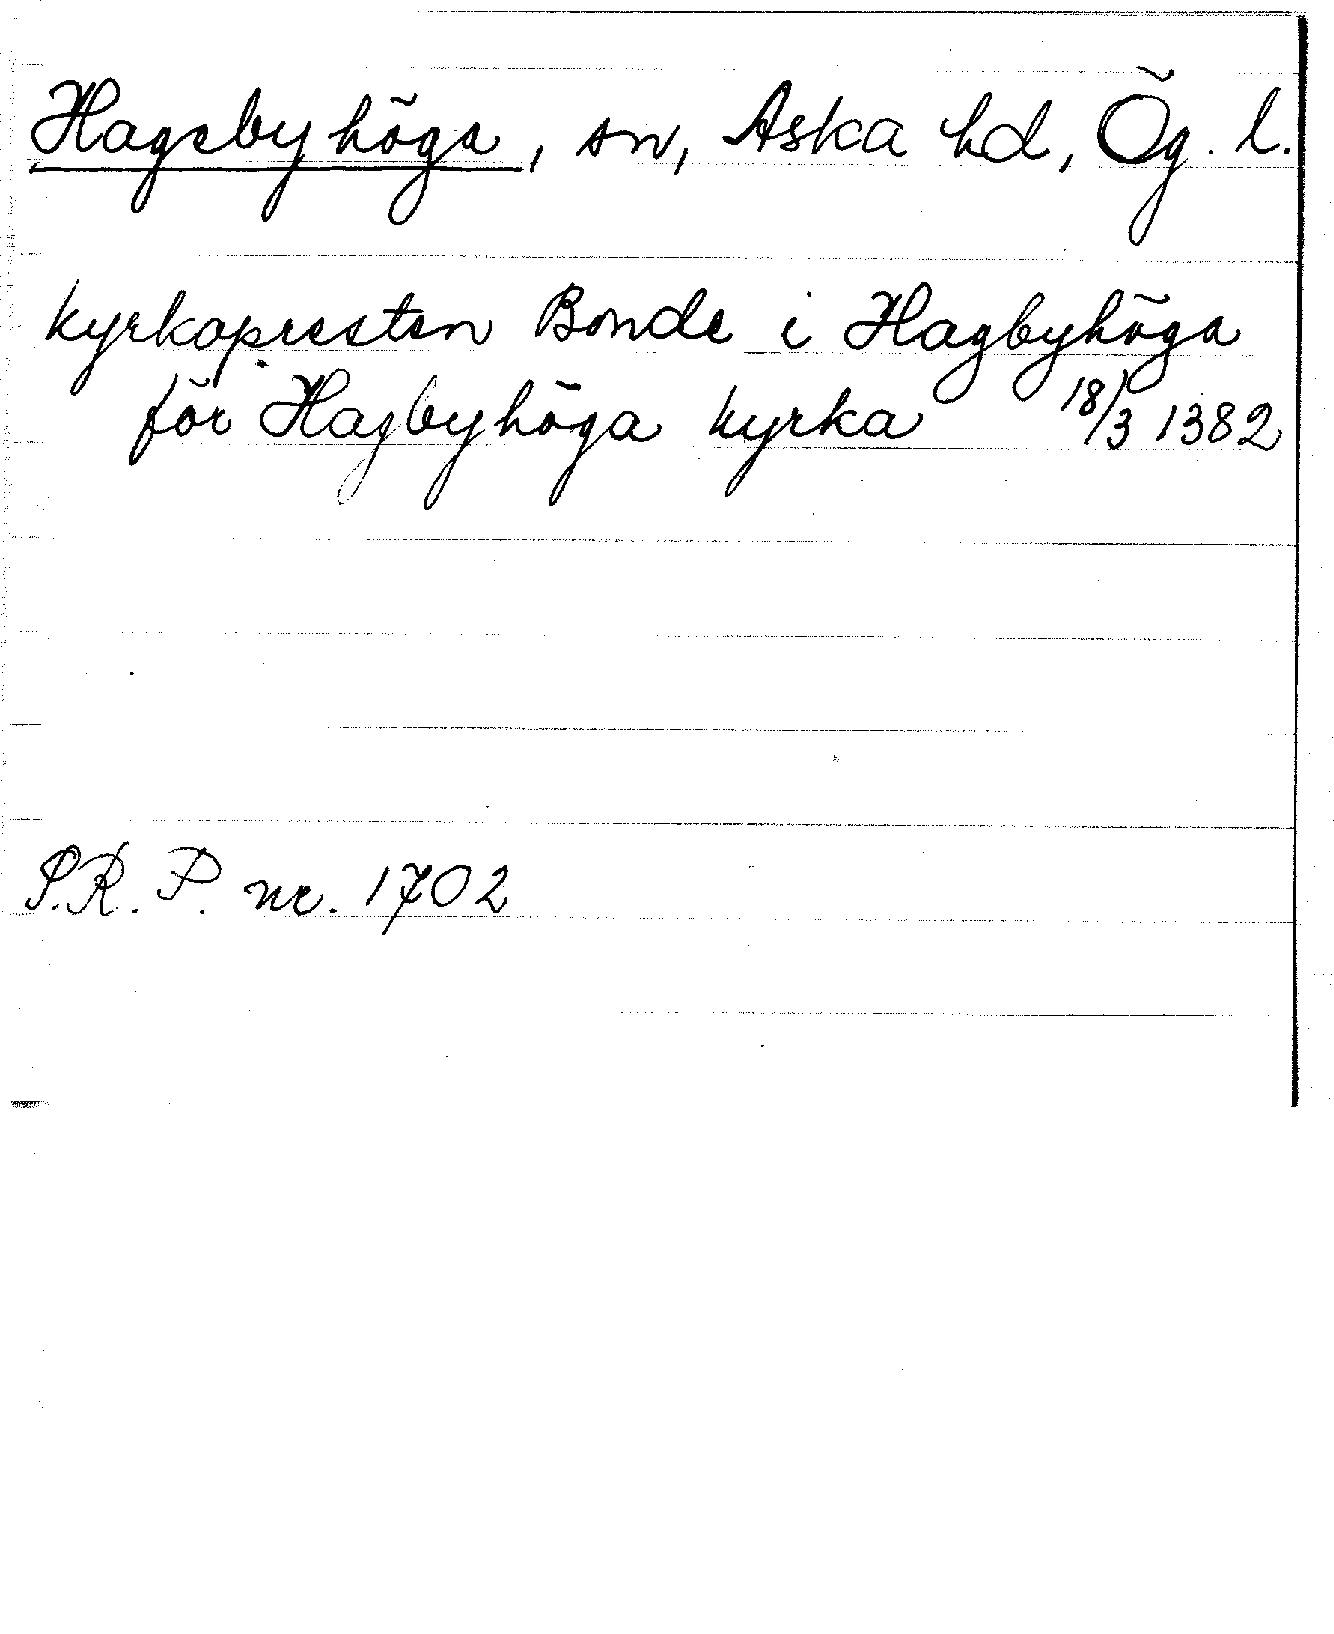 Hagebyhöga, sn, Aska hd, Ög. l.
kyrkopresten Bonde i Hagbyhöga
för Hagbyhöga kyrka 18/3 1382
S.R.P. nr. 1702